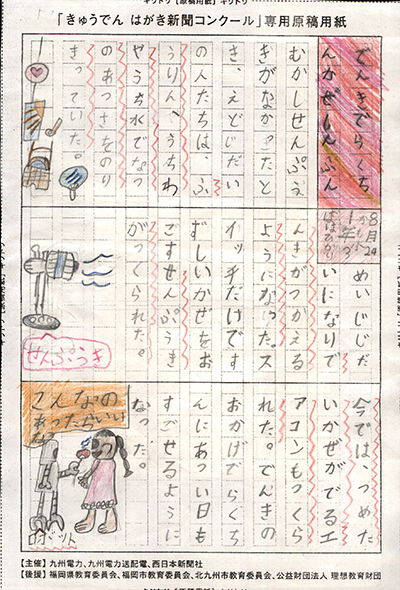 「きゅうでん はがき新聞コンクール」専用原稿用紙
でんきでらくち
んかぜしんぶん
むかしせんぷう
きがなかったと
き、えどじだい
の人たちは、ふ
うりん、うちわ
やうち水でなつ
のあつさをのり
きっていた。
8月24
1年
めいじじだ
いになりで
んきがつかえる
ようになった。ス
イッチだけです
ずしいかぜをお
こすせんぷうき
がつくられた。
せんぷうき
今では、つめた
いかぜがでるエ
アコンもつくら
れた。でんきの
おかげでらくち
んにあつい日も
すごせるように
なった。
こんなの
あったらいい
な
ロボット
【主催】九州電力、九州電力送配電、西日本新聞社
【後援】福岡県教育委員会、福岡市教育委員会、北九州市教育委員会、公益財団法人 理想教育財団